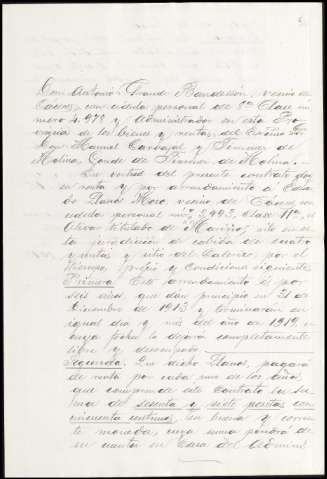 Don Antonio Grande Baudessón, vecino de
Cáceres, con cédula personal de 8ª Clase nú
mero 4.978 y Administrador en esta Pro
vincia de los bienes y rentas, del Excmo Sr
Don Manuel Carbajal y Jimenez de
Molina, Conde de Jimenez de Molina.
En virtud del presente contrato doy
en renta y por arrendamiento a Edua
do Llanos vecino de Cáceres con
cédula personal nº 3,443, clase 11ª, el
Olivar titulado de sito en
la jurisdicción de cabida de cuatro
yuntas y sitio del por el
tiempo, precio y condiciones siguientes
Primera: Este arrendamiento es por
seis años, que dan principio en 31 de
Diciembre de 1913 y terminaran en
igual dia y mes del año de 1919, en
cuya fecha lo dejará completamente
libre y desocupado.
Segunda: En dicho Llanos, pagará
de renta por cada uno de los años
que comprende este contrato la su
ma de sesenta y siete pesetas con
cincuenta centimos, en buena y corrien
te moneda, cuya suma pondrá de
su cuenta en Casa del Admini